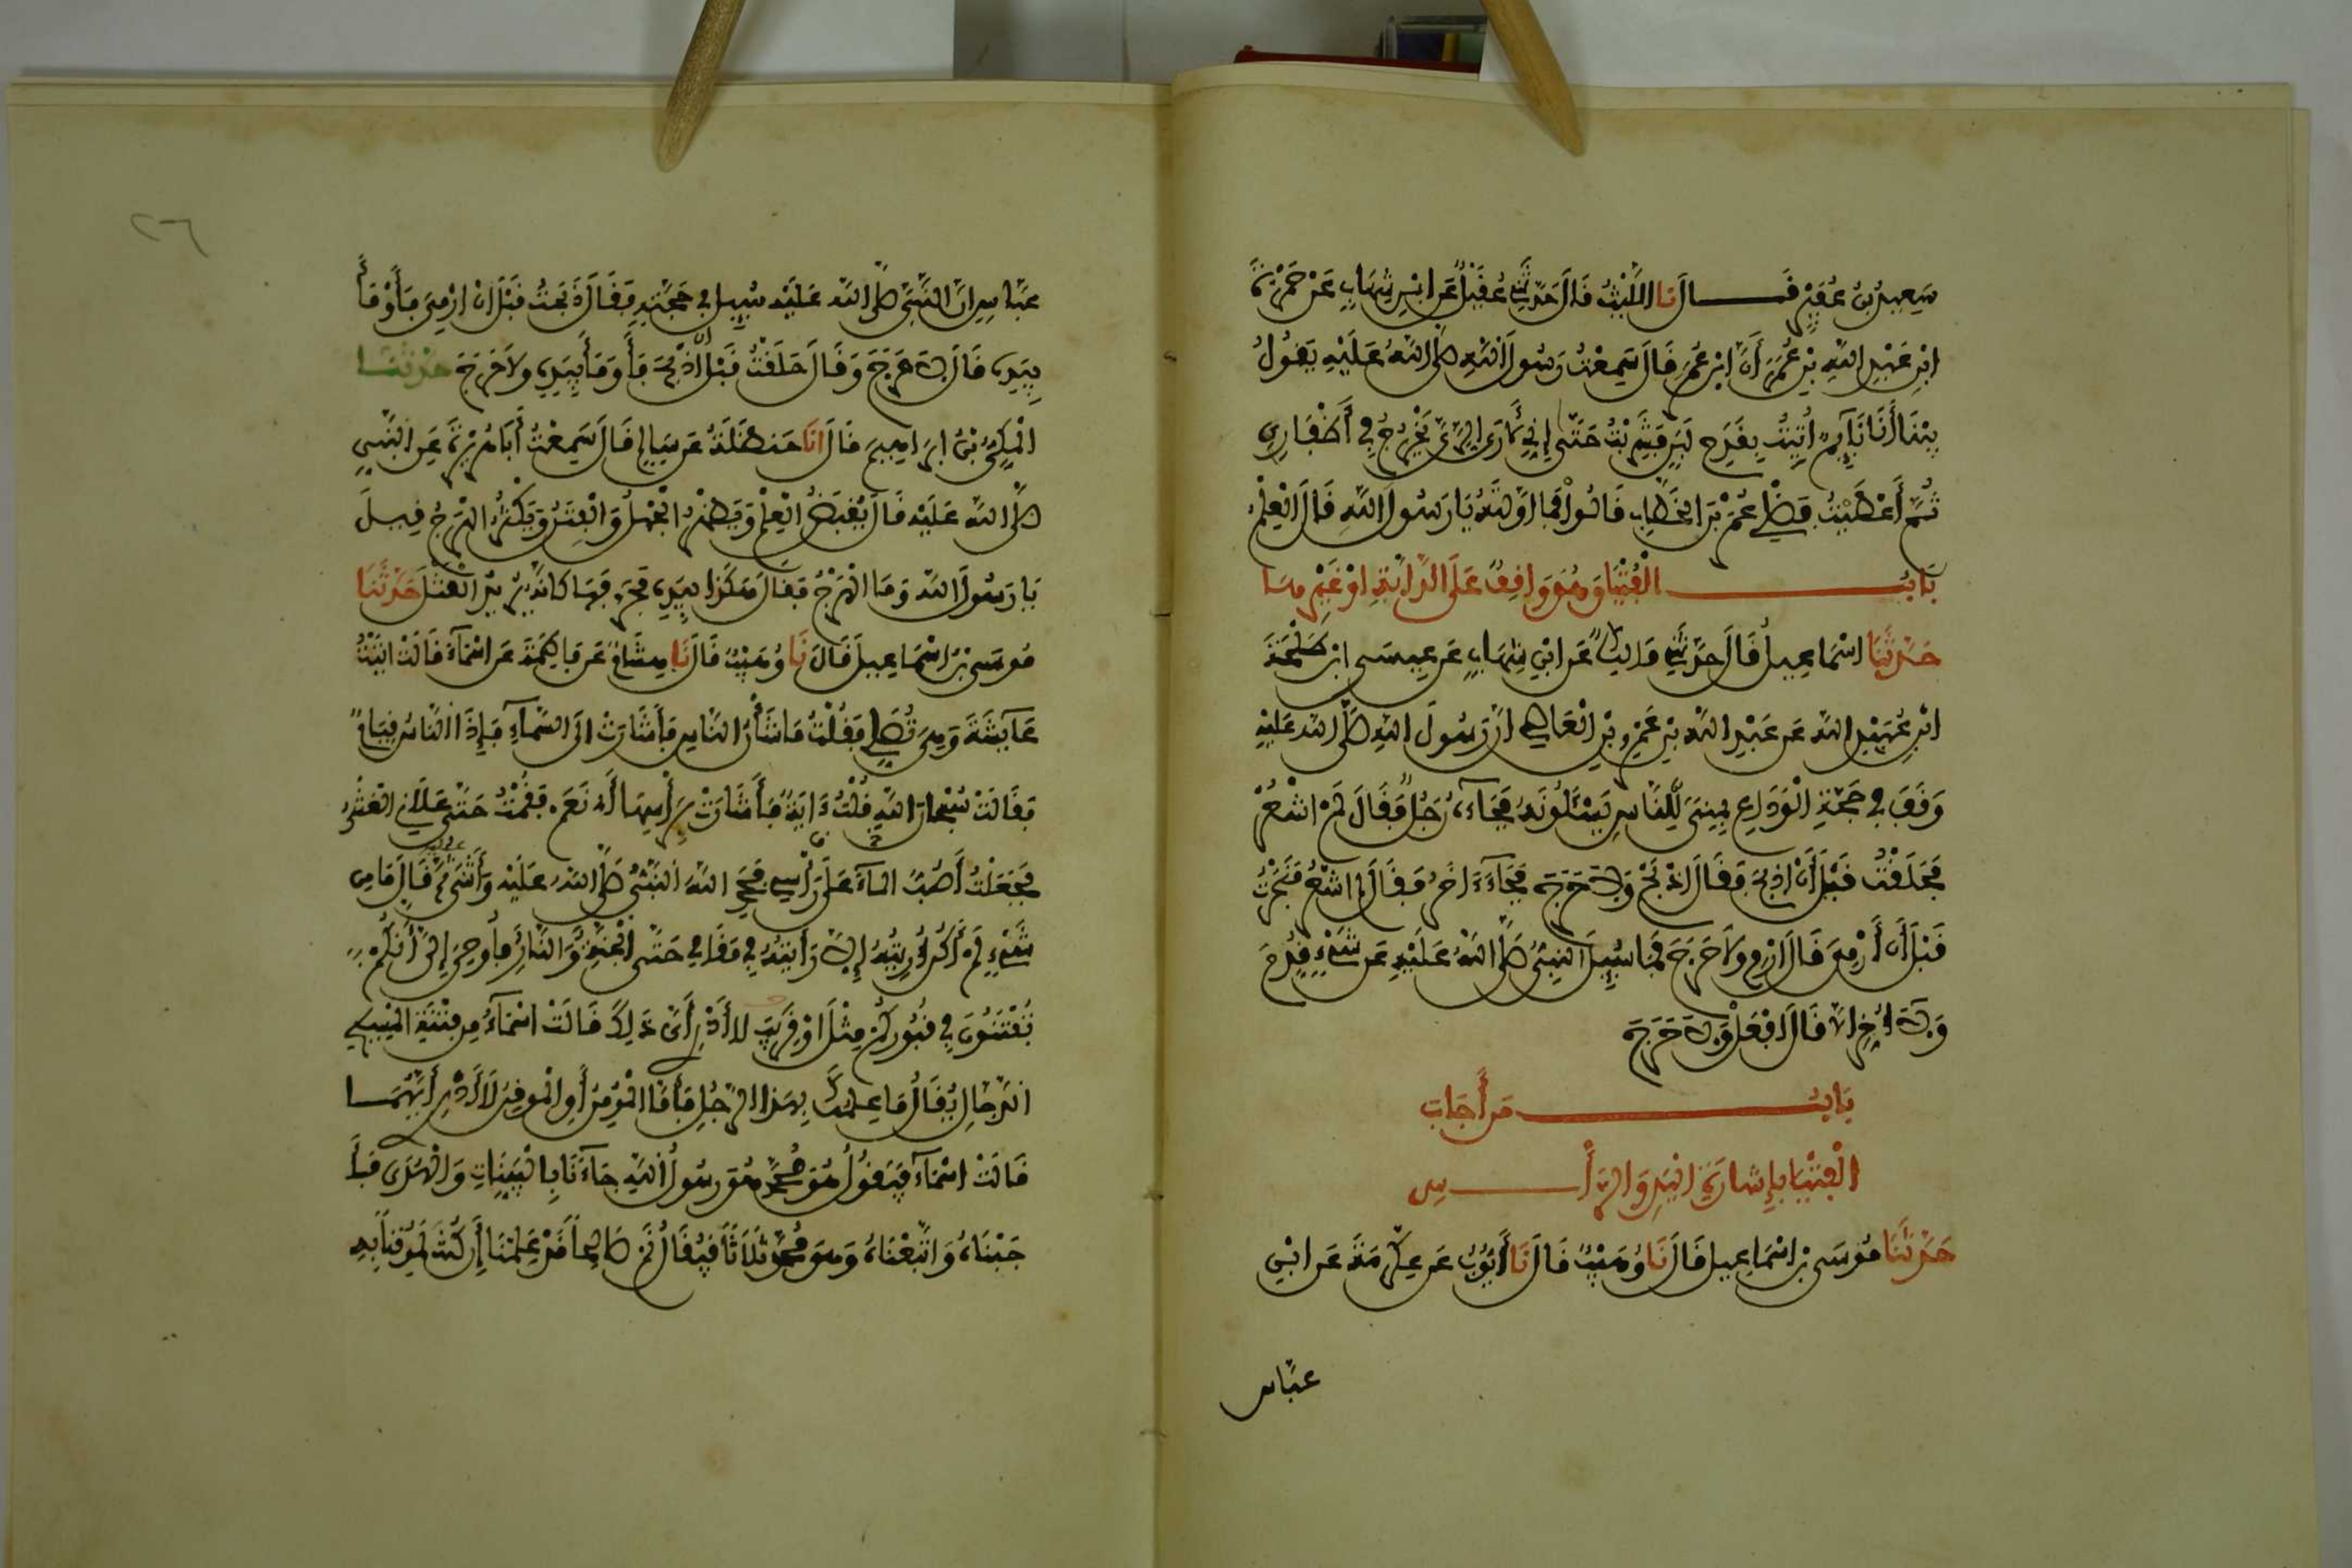 سَعِيدُ بْنُ عُفَيْرٍ قَالَ نَا اللَّيْثُ قَالَ حَدَّثَنِي عُقَيْلٌ عَنِ ابْنِ شِهَابٍ عَنْ حَمْزَةَ
ابْنِ عَبْدِ اللَّهِ بْنِ عُمَرَ أَنَّ ابْنَ عُمَرَ قَالَ سَمِعْتُ رَسُولَ اللَّهِ صَلَّى اللَّهُ عَلَيْهِ يَقُولُ
بَيْنَا أَنَا نَائِمٌ أُتِيتُ بِقَدَحِ لَبَنٍ فَشَرِبْتُ حَتَّى إِنِّي لَأَرَى الرِّيَّ يَخْرُجُ فِي أَظْفَارِي
ثُمَّ أَعْطَيْتُ فَضْلِي عُمَرَ بْنَ الْخَطَّابِ قَالُوا فَمَا أَوَّلْتَهُ يَا رَسُولَ اللَّهِ قَالَ الْعِلْمَ
بَابُ الْفُتْيَا وَهُوَ وَاقِفٌ عَلَى الدَّابَّةِ أَوْ غَيْرِهَا
حَدَّثَنَا إِسْمَاعِيلُ قَالَ حَدَّثَنِي مَالِكٌ عَنِ ابْنِ شِهَابٍ عَنْ عِيسَى ابْنِ طَلْحَةَ
ابْنِ عُبَيْدِ اللَّهِ عَنْ عَبْدِ اللَّهِ بْنِ عَمْرِو بْنِ الْعَاصِي أَنَّ رَسُولَ اللَّهِ صَلَّى اللَّهُ عَلَيْهِ
وَقَفَ فِي حَجَّةِ الْوَدَاعِ بِمِنًى لِلنَّاسِ يَسْأَلُونَهُ فَجَاءَهُ رَجُلٌ فَقَالَ لَمْ أَشْعُرْ
فَحَلَقْتُ قَبْلَ أَنْ أَذْبَحَ فَقَالَ اذْبَحْ وَلَا حَرَجَ فَجَاءَ آخَرُ فَقَالَ لَمْ أَشْعُرْ فَنَحَرْتُ
قَبْلَ أَنْ أَرْمِيَ قَالَ ارْمِ وَلَا حَرَجَ فَمَا سُئِلَ النَّبِيُّ صَلَّى اللَّهُ عَلَيْهِ عَنْ شَيْءٍ قُدِّمَ
وَلَا أُخِّرَ إِلَّا قَالَ افْعَلْ وَلَا حَرَجَ
بَابُ مَنْ أَجَابَ
الْفُتْيَا بِإِشَارَةِ الْيَدِ وَالرَّأْسِ
حَدَّثَنَا مُوسَى بْنُ إِسْمَاعِيلَ قَالَ نَا وُهَيْبٌ قَالَ نَا أَيُّوبُ عَنْ عِكْرِمَةَ عَنِ ابْنِ
عَبَّاسٍ
٢٦
عَبَّاسٍ أَنَّ النَّبِيَّ صَلَّى اللَّهُ عَلَيْهِ سُئِلَ فِي حَجَّتِهِ فَقَالَ ذَبَحْتُ قَبْلَ أَنْ أَرْمِيَ فَأَوْمَأَ
بِيَدِهِ قَالَ لَا حَرَجَ وَقَالَ حَلَقْتُ قَبْلَ أَنْ أَذْبَحَ فَأَوْمَأَ بِيَدِهِ وَلَا حَرَجَ حَدَّثَنَا
الْمَكِّيُّ بْنُ إِبْرَاهِيمَ قَالَ أَنَا حَنْظَلَةُ عَنْ سَالِمٍ قَالَ سَمِعْتُ أَبَا هُرَيْرَةَ عَنِ النَّبِيِّ
صَلَّى اللَّهُ عَلَيْهِ قَالَ يُقْبَضُ الْعِلْمُ وَيَظْهَرُ الْجَهْلُ وَالْفِتَنُ وَيَكْثُرُ الْهَرْجُ قِيلَ
يَا رَسُولَ اللَّهِ وَمَا الْهَرْجُ فَقَالَ هَكَذَا بِيَدِهِ فَحَرَّفَهَا كَأَنَّهُ يُرِيدُ الْقَتْلَ حَدَّثَنَا
مُوسَى بْنُ إِسْمَاعِيلَ قَالَ نَا وُهَيْبٌ قَالَ نَا هِشَامٌ عَنْ فَاطِمَةَ عَنْ أَسْمَاءَ قَالَتْ أَتَيْتُ
عَائِشَةَ وَهِيَ تُصَلِّي فَقُلْتُ مَا شَأْنُ النَّاسِ فَأَشَارَتْ إِلَى السَّمَاءِ فَإِذَا النَّاسُ قِيَامٌ
فَقَالَتْ سُبْحَانَ اللَّهِ قُلْتُ آيَةٌ فَأَشَارَتْ بِرَأْسِهَا أَيْ نَعَمْ فَقُمْتُ حَتَّى عَلَانِي الْغَشْيُ
فَجَعَلْتُ أَصُبُّ الْمَاءَ عَلَى رَأْسِي فَحَمِدَ اللَّهَ النَّبِيُّ صَلَّى اللَّهُ عَلَيْهِ وَأَثْنَى عَلَيْهِ ثُمَّ قَالَ مَا مِنْ
شَيْءٍ لَمْ أَكُنْ أُرِيتُهُ إِلَّا رَأَيْتُهُ فِي مَقَامِي حَتَّى الْجَنَّةُ وَالنَّارُ فَأُوحِيَ إِلَيَّ أَنَّكُمْ
تُفْتَنُونَ فِي قُبُورِكُمْ مِثْلَ أَوْ قَرِيبَ لَا أَدْرِي أَيَّ ذَلِكَ قَالَتْ أَسْمَاءُ مِنْ فِتْنَةِ الْمَسِيحِ
الدَّجَّالِ يُقَالُ مَا عِلْمُكَ بِهَذَا الرَّجُلِ فَأَمَّا الْمُؤْمِنُ أَوِ الْمُوقِنُ لَا أَدْرِي أَيَّهُمَا
قَالَتْ أَسْمَاءُ فَيَقُولُ هُوَ مُحَمَّدٌ هُوَ رَسُولُ اللَّهِ جَاءَنَا بِالْبَيِّنَاتِ وَالْهُدَى فَأَ
جَبْنَاهُ وَاتَّبَعْنَاهُ وَهُوَ مُحَمَّدٌ ثَلَاثًا فَيُقَالُ نَمْ صَالِحًا قَدْ عَلِمْنَا إِنْ كُنْتَ لَمُوقِنًا بِهِ